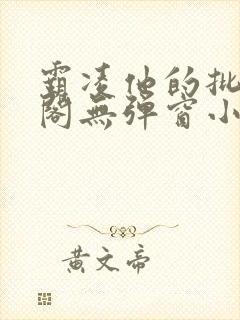 霸凌他的批
阁無彈窗小
黄文帝